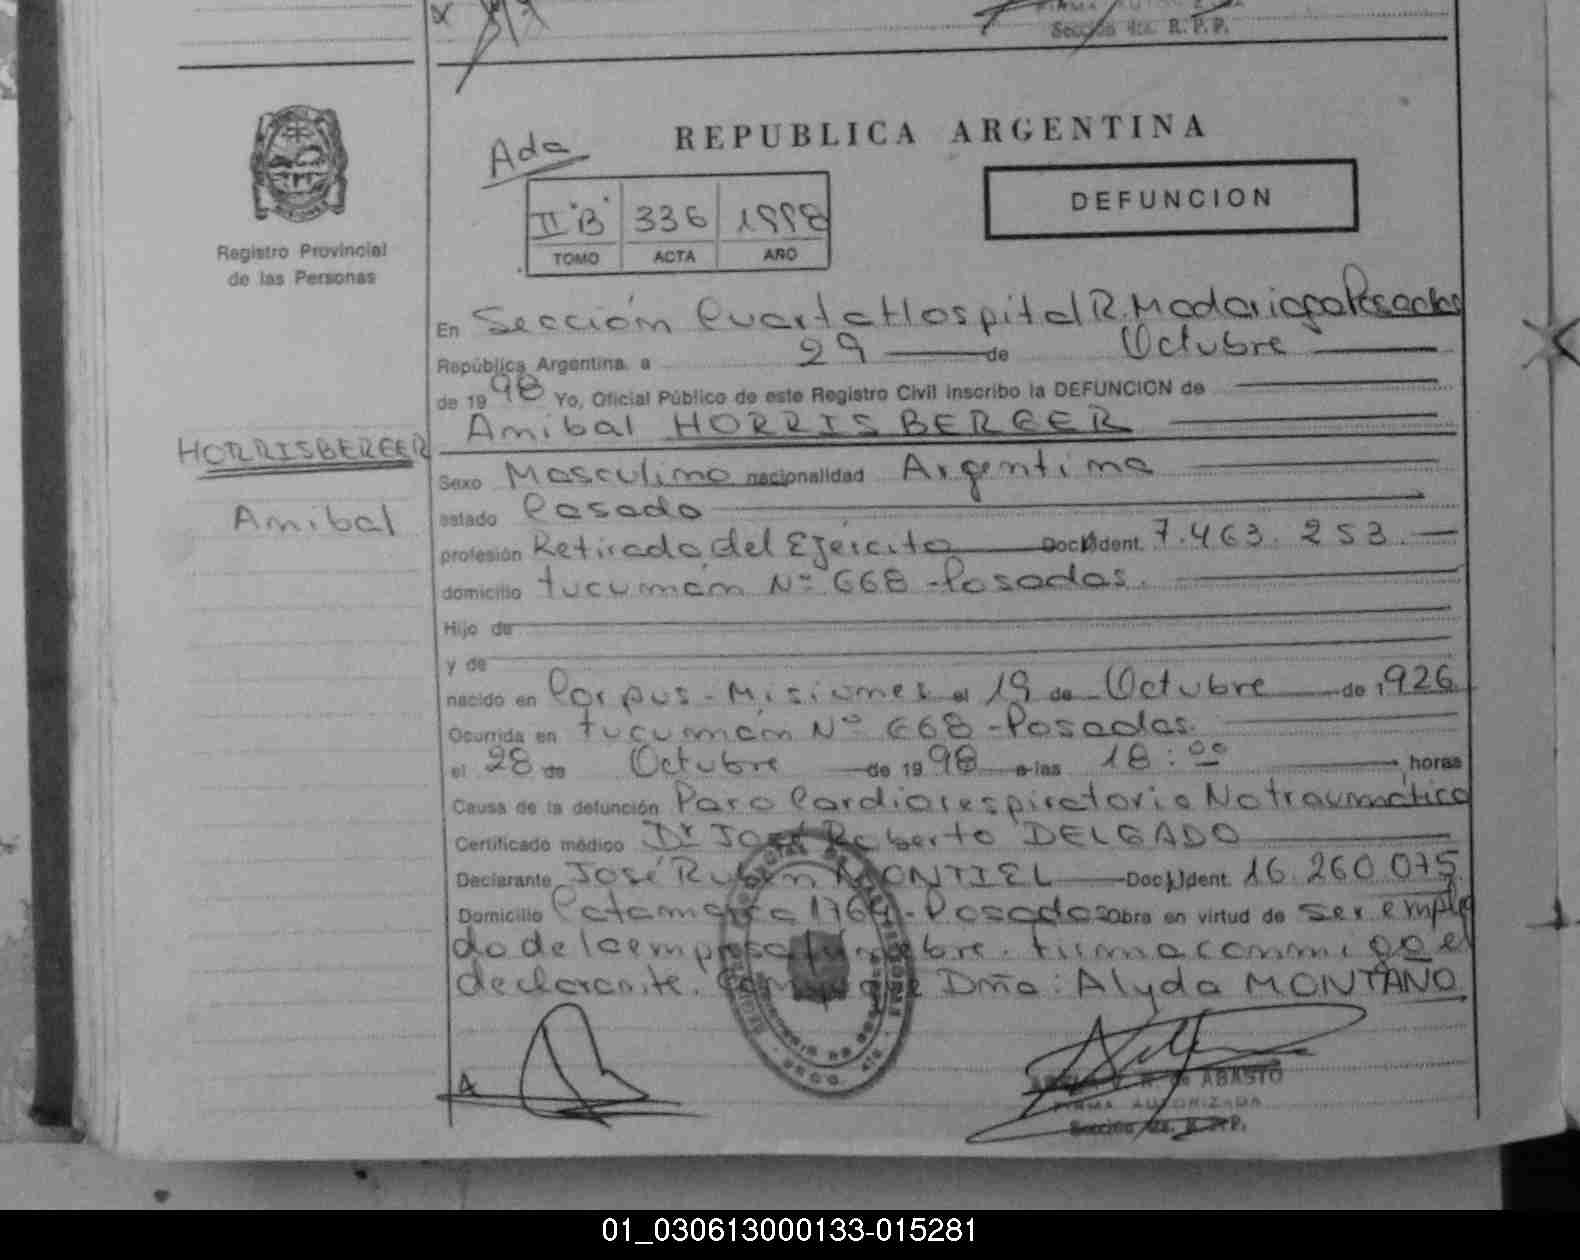 Sección 4ta. R. P. P.
REPUBLICA ARGENTINA
Ada
DEFUNCION
II "B" 336 1998
TOMO ACTA AÑO
Registro Provincial
de las Personas
En Sección Cuarta Hospital R. Madariaga Posadas
República Argentina, a 29 de Octubre
de 1998 Yo, Oficial Público de este Registro Civil inscribo la DEFUNCION de
HORRISBERGER
Anibal
Anibal HORRISBERGER
Sexo Masculino nacionalidad Argentina
estado Casado
profesión Retirado del Ejército Doc. Ident. 7.463.253.
domicilio tucumán Nº 668 - Posadas.
Hijo de
y de
nacido en Corpus - Misiones el 19 de Octubre de 1926
Ocurrida en tucumán Nº 668 - Posadas.
el 28 de Octubre de 1998 a las 18:00 horas
Causa de la defunción Paro Cardiorespiratorio No traumático
Certificado médico Dr José Roberto DELGADO
Declarante José Rubén MONTIEL Doc. Ident. 16.260.075
Domicilio Catamarca 1764 - Posadas obra en virtud de ser emplea
do de la empresa fúnebre. firma conmigo el
declarante. Dña: Alyda MONTANO
de ABASTO
FIRMA AUTORIZADA
Sección 4ta. R. P. P.
01_030613000133-015281